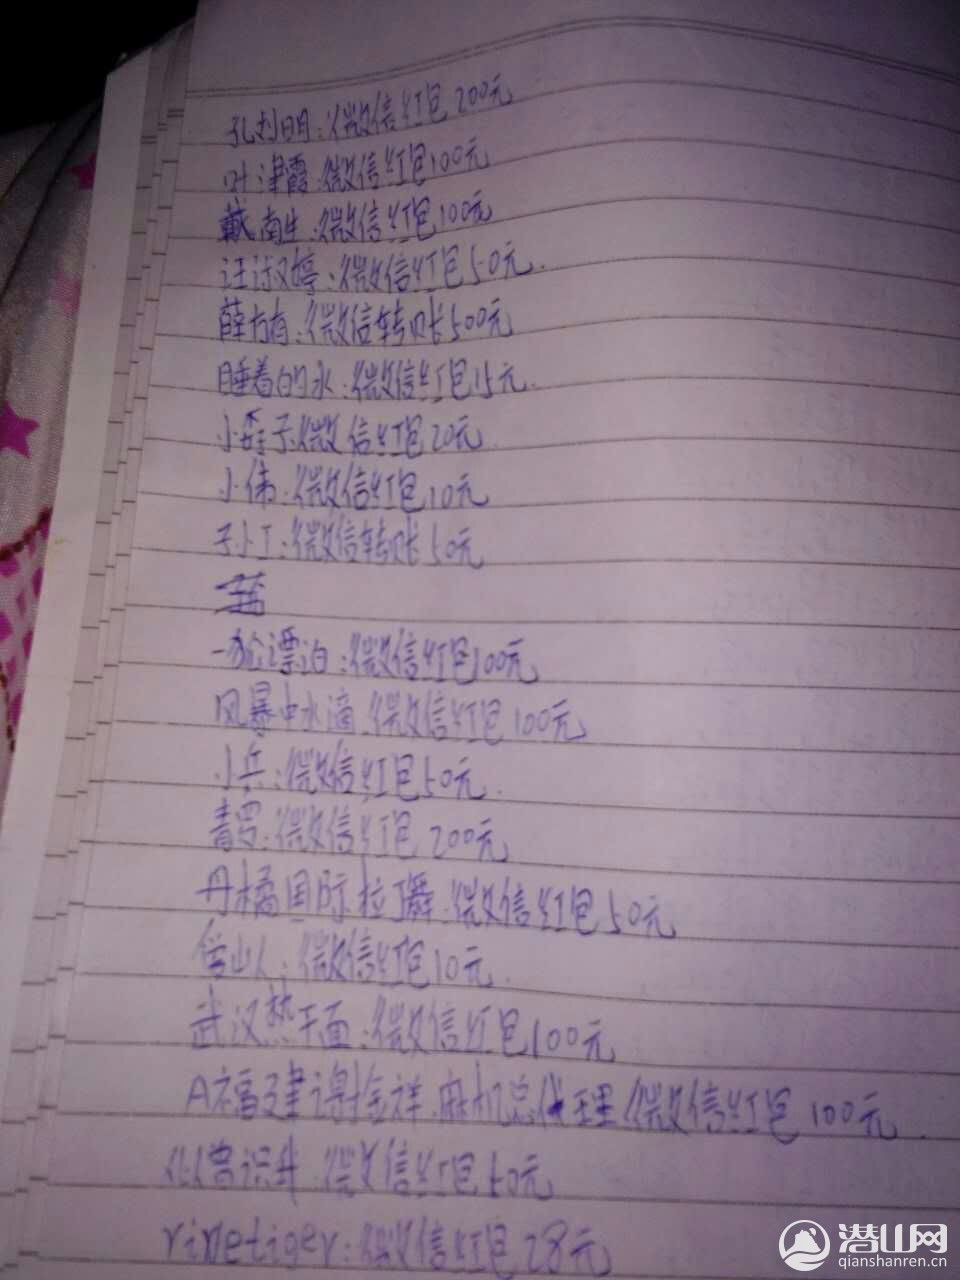 孔加明:微信红包200元
叶津霞:微信红包100元
戴南生:微信红包100元
汪淑婷:微信红包50元.
薛方有:微信转账500元
睡着的水:微信红包15元.
小季子:微信红包20元
小伟:微信红包10元
子小丁:微信转账50元
一种漂泊:微信红包100元
风暴中水滴:微信红包100元
小兵:微信红包50元.
青罗:微信红包200元
丹橘国际拉丁舞:微信红包50元
信山人:微信红包10元.
武汉热干面:微信红包100元
A福建谢金祥.麻机总代理:微信红包100元.
似曾识我:微信红包50元
rinetiger:微信红包28元
潜山网
qianshanren.cn